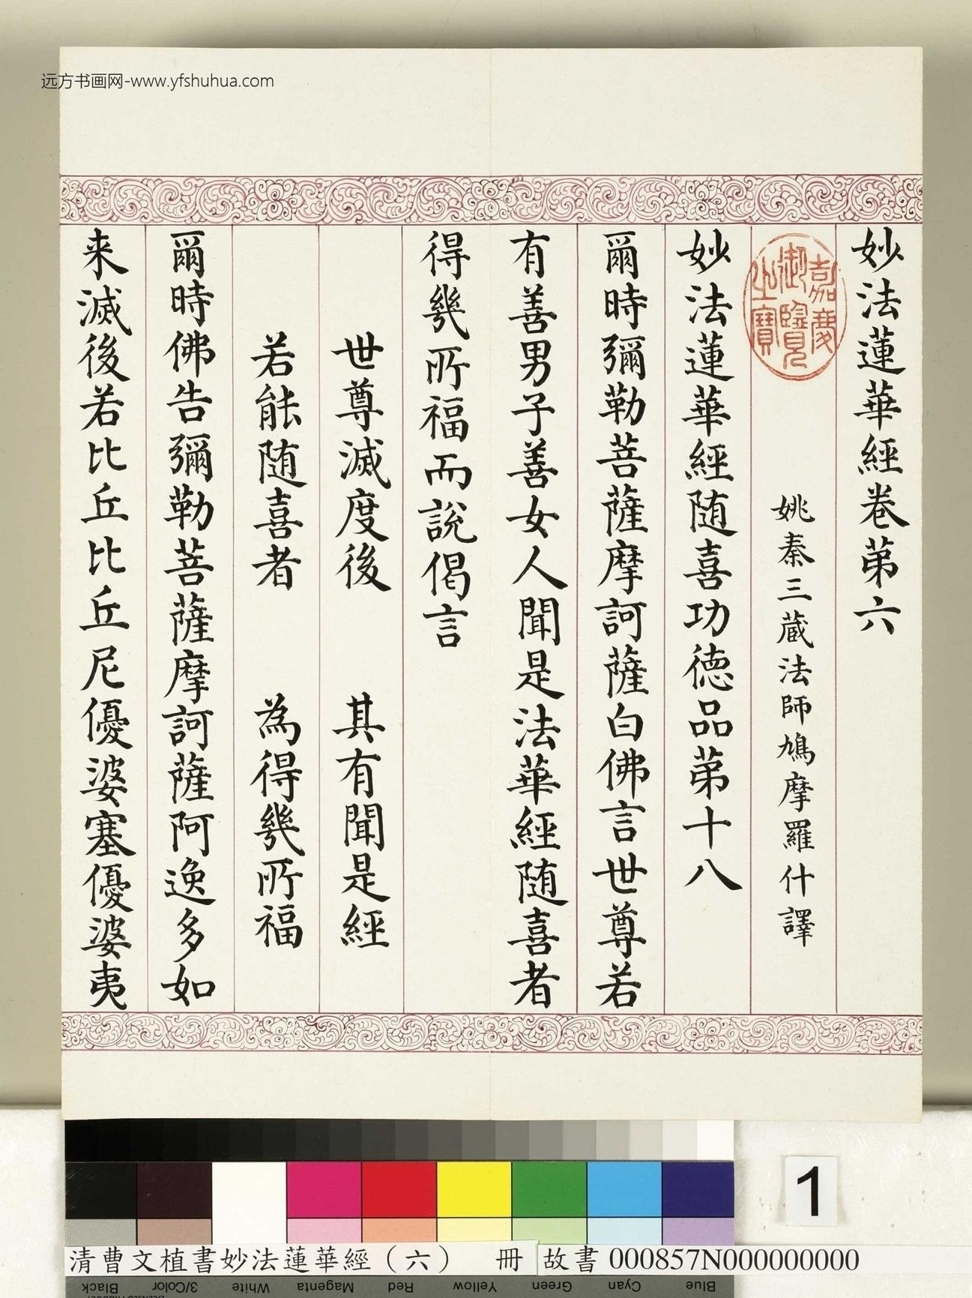 远方书画网-www.yfshuhua.com
妙法蓮華經卷第六
姚秦三藏法師鳩摩羅什譯
嘉慶御覽之寶
妙法蓮華經随喜功德品第十八
爾時彌勒菩薩摩訶薩白佛言世尊若
有善男子善女人聞是法華經随喜者
得幾所福而說偈言
世尊滅度後 其有聞是經
若能随喜者 為得幾所福
爾時佛告彌勒菩薩摩訶薩阿逸多如
来滅後若比丘比丘尼優婆塞優婆夷
1
清曹文植書妙法蓮華經（六） 冊 故書 000857N000000000
Black 3/Color White Magenta Red Yellow Green Cyan Blue